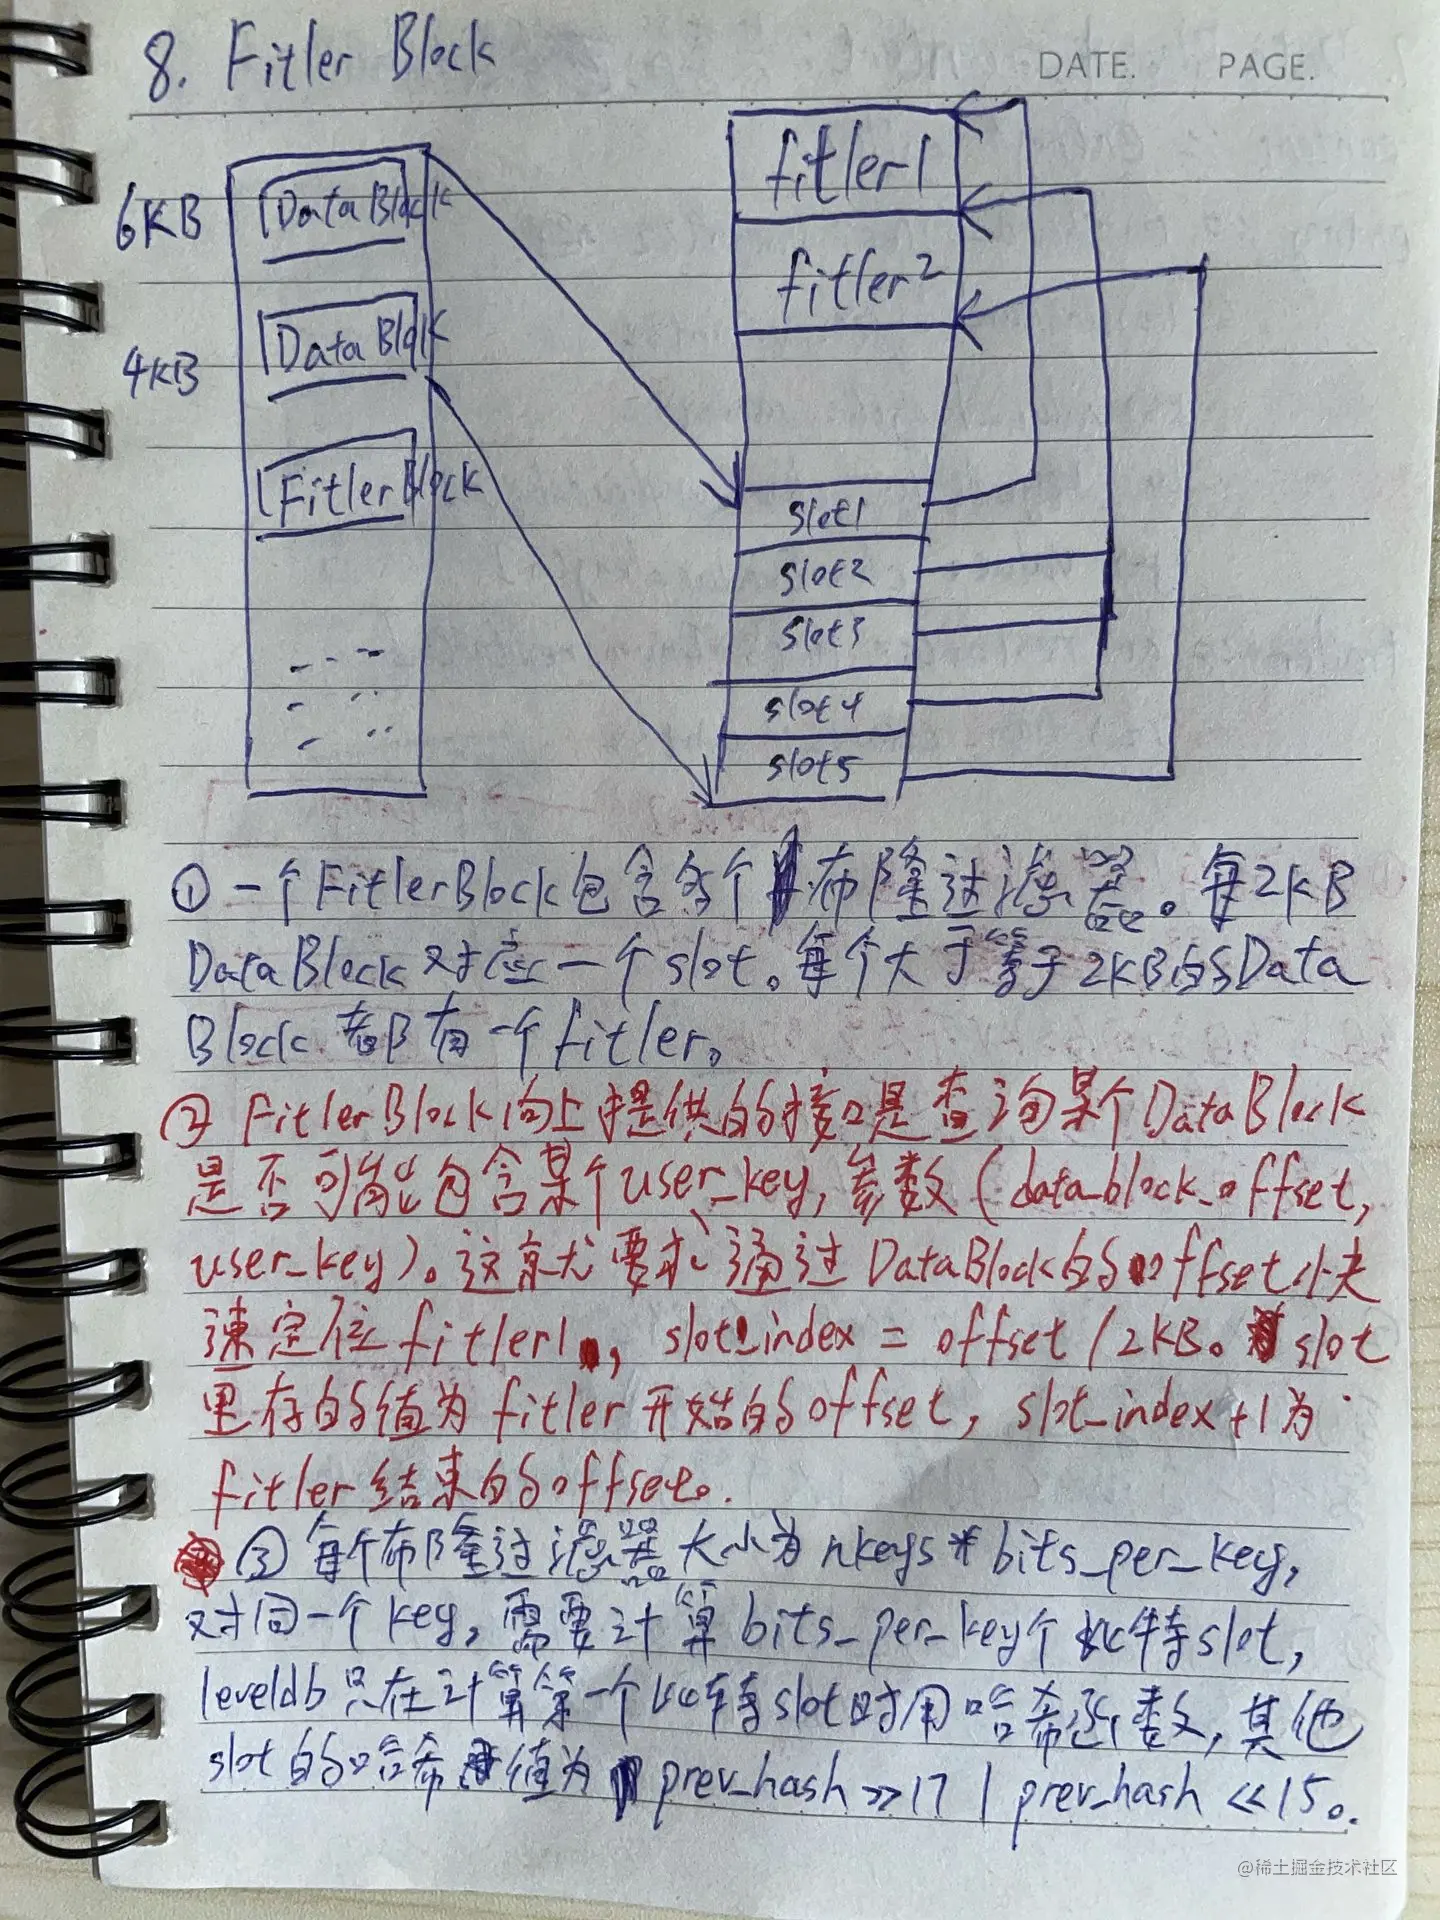 8. Fitler Block
DATE. PAGE.
6KB
DataBlock
4KB
DataBlock
FitlerBlock
fitler1
fitler2
slot1
slot2
slot3
slot4
slot5
① 一个FitlerBlock包含多个布隆过滤器。每2KB
DataBlock对应一个slot。每个大于等于2KB的Data
Block都有一个fitler。
② FitlerBlock向上提供的接口是查询某个DataBlock
是否可能包含某个user_key,参数(data_block_offset,
user_key)。这就要求通过DataBlock的offset快
速定位fitler1, slot_index = offset / 2KB。slot
里存的值为fitler开始的offset, slot_index+1为
fitler结束的offset。
③ 每个布隆过滤器大小为nkeys*bits_per_key,
对同一个key,需要计算bits_per_key个比特slot,
leveldb只在计算第一个比特slot时用哈希函数,其他
slot的哈希值为prev_hash>>17 | prev_hash<<15。
@稀土掘金技术社区